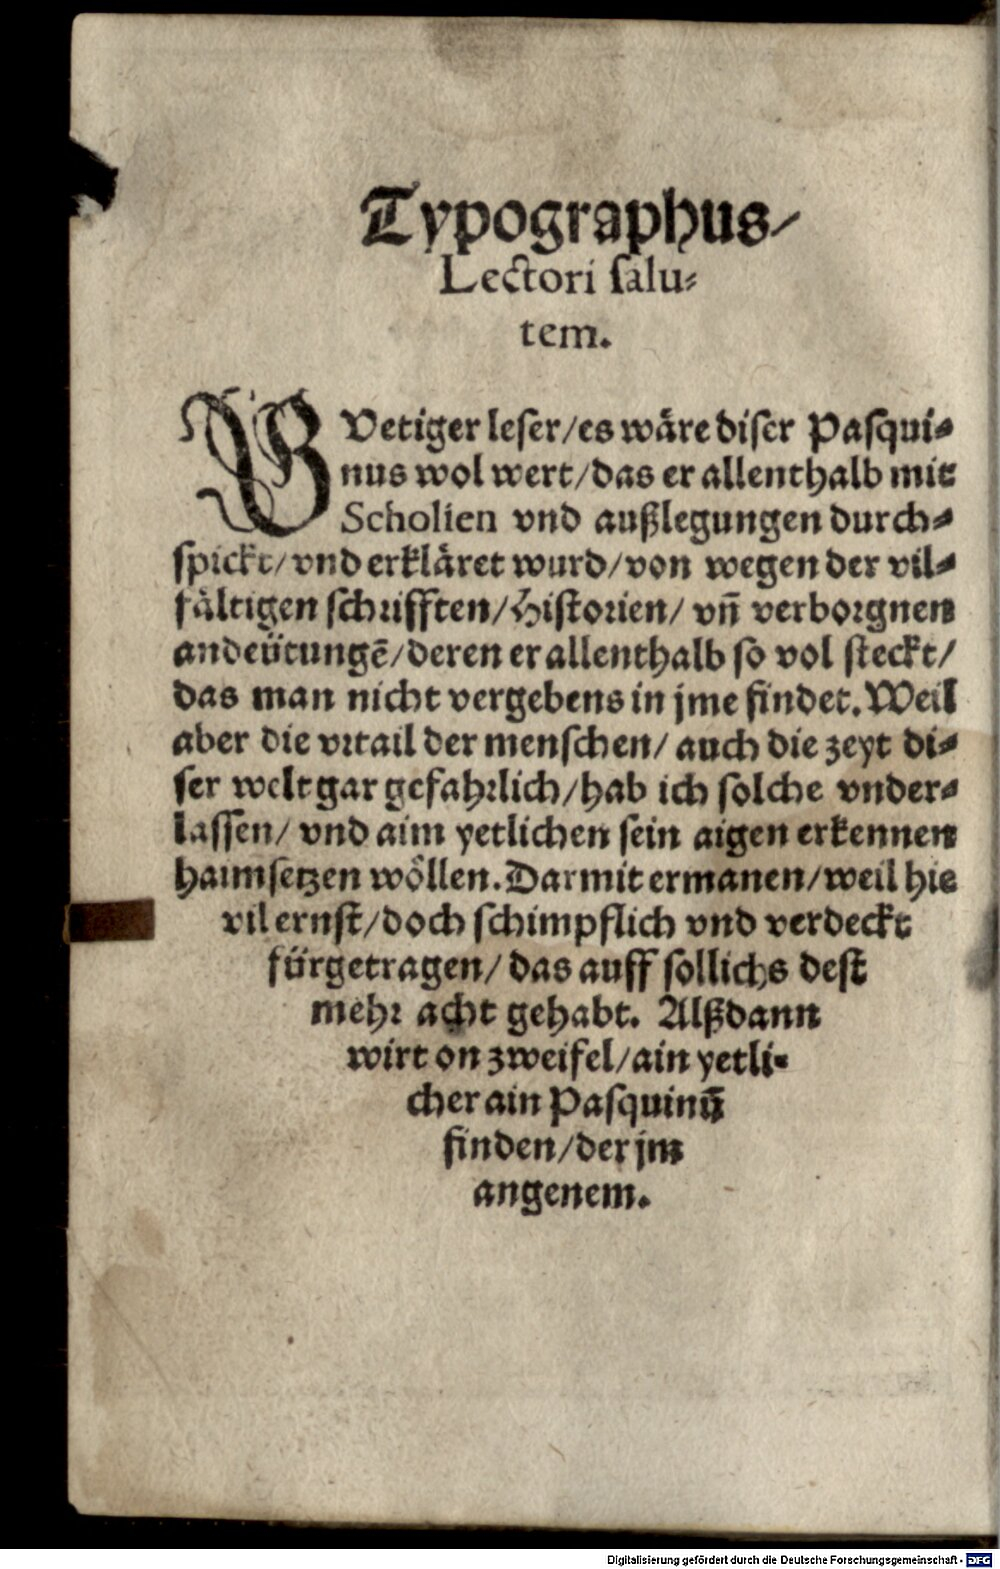 Typographus/
Lectori salu⸗
tem.
GVetiger leser/es wäre diser Pasqui⸗
nus wol wert/das er allenthalb mit
Scholien vnd außlegungen durch⸗
spickt/vnd erkläret wurd/von wegen der vil⸗
fältigen schrifften/Historien/ vñ verborgnen
andeütungẽ/deren er allenthalb so vol steckt/
das man nicht vergebens in jme findet. Weil
aber die vrtail der menschen/ auch die zeyt di⸗
ser welt gar gefahrlich/hab ich solche vnder⸗
lassen/ vnd aim yetlichen sein aigen erkennen
haimsetzen wöllen. Darmit ermanen/weil hie
vil ernst/doch schimpflich vnd verdeckt
fürgetragen/ das auff sollichs dest
mehr acht gehabt. Alßdann
wirt on zweifel/ain yetli⸗
cher ain Pasquinū
finden/der jm
angenem.
Digitalisierung gefördert durch die Deutsche Forschungsgemeinschaft - DFG